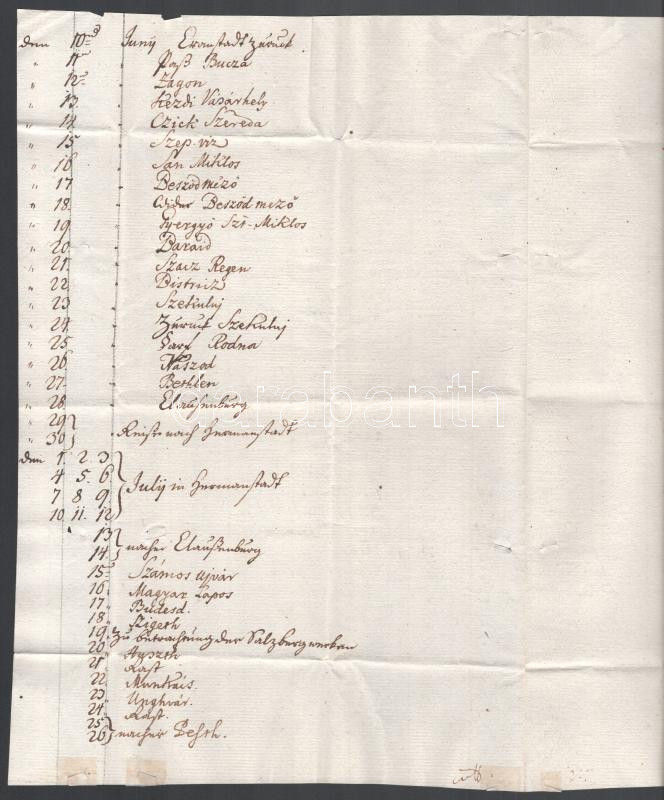 den 10ᵈ Juny Cronstadt zuruck
" 11 " Paß Bucza
" 12 " Zagon
" 13 " Kezdi Vasárhely
" 14 " Czick Szereda
" 15 " Szep-viz
" 16 " San Miklos
" 17 " Beszódmézó
" 18 " wider Beszód mezó
" 19 " Gyergyó Szt-Miklos
" 20 " Baraid
" 21 " Szasz Regen
" 22 " Districz
" 23 " Szekuluj
" 24 " Zuruck Szekuluj
" 25 " Rodna
" 26 " Naszod
" 27 " Bethlen
" 28 " Clausenburg
" 29
" 30 } Reise nach Hermanstadt
den 1. 2. 3.
4 5. 6
7 8. 9
10. 11. 12 } July in Hermanstadt
13
14 } nacher Claußenburg
15 Számos ujvár
16 Magyar Lapos
17 Budesd.
18 Szigeth
19 Zu betrachtung der Salzbergwerken
20
21 Rast
22 Munkáis.
23 Unghvár.
24 Rast.
25
26 } nacher Pesth.
Darabanth